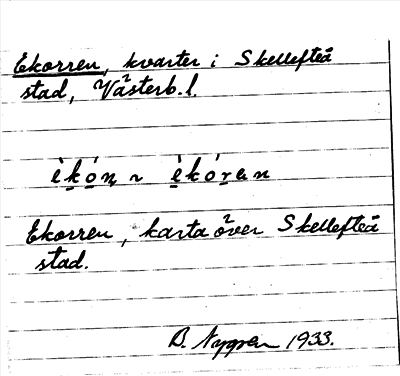 Ekorren, kvarter i Skellefteå
stad, Västerb. l.
èkón ~ èkóran
Ekorren, karta över Skellefteå
stad.
B. Nygren 1933.